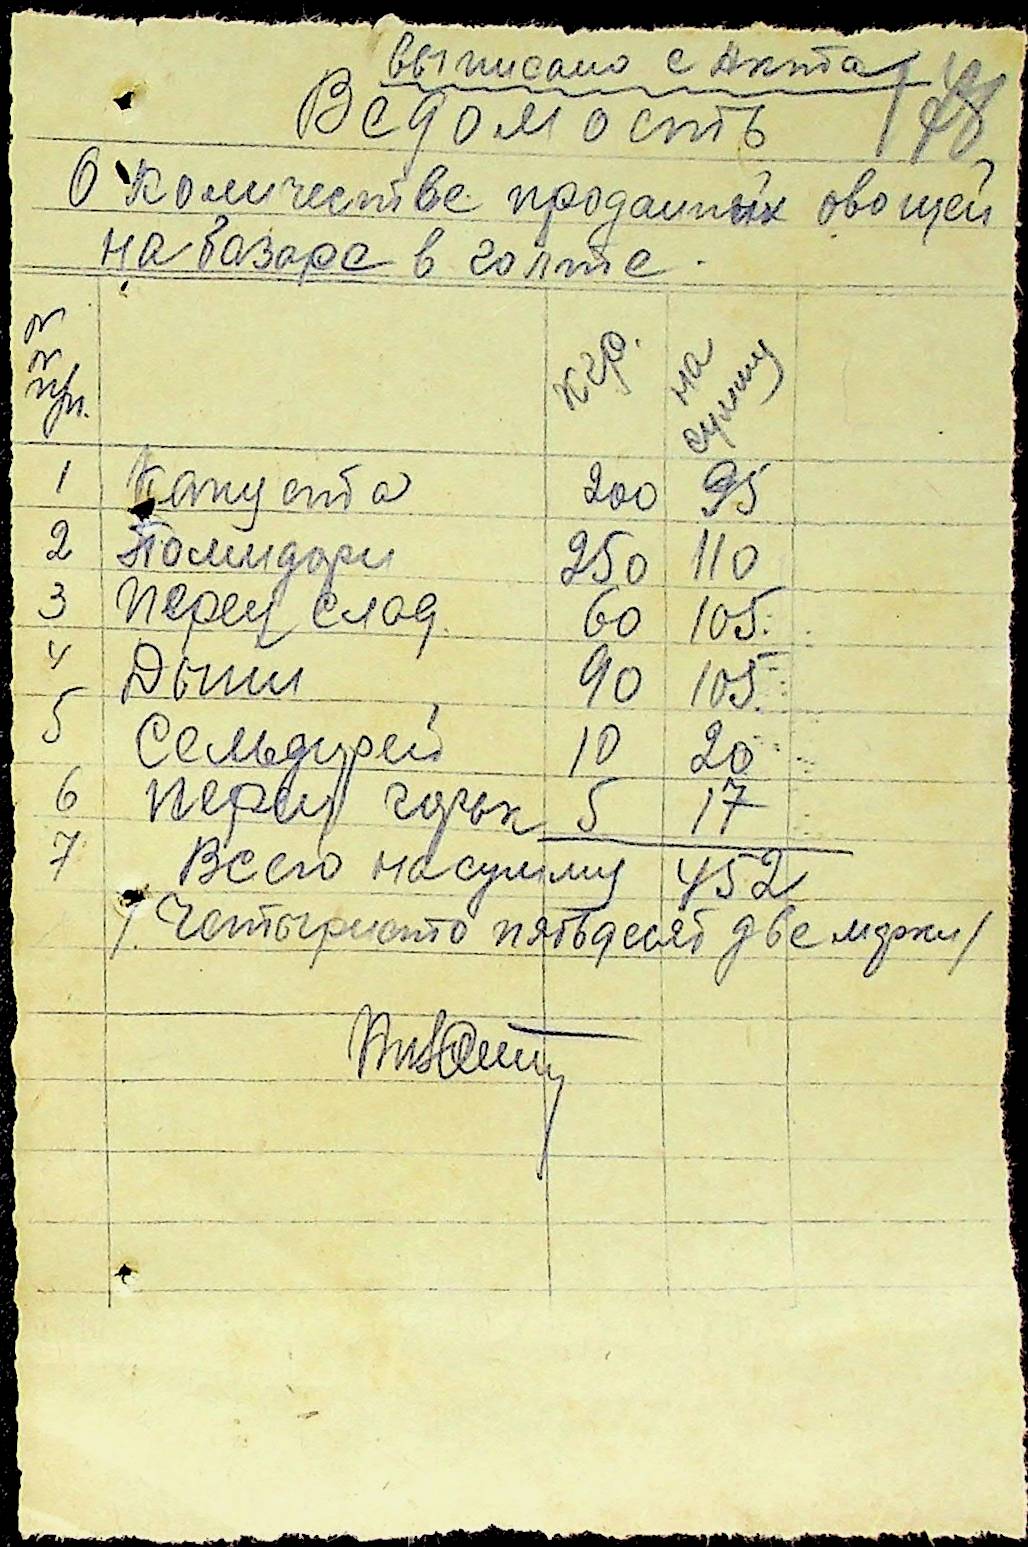 выписано с Акта
Ведомость
О количестве проданных овощей
на базаре в голте.
кгр.
на сумму
1 Капуста 200 95
2 Помидори 250 110
3 Перец слад. 60 105.
4 Дыни 90 105.
5 Сельдерей 10 20
6 Перец горьк 5 17
7 Всего на сумму 452
/. Четыриста пятьдесят две марки/